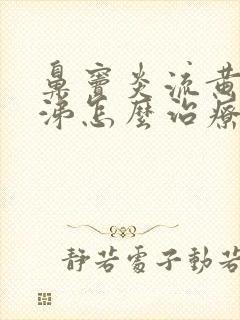 鼻窦炎流黄
涕怎麼治療
靜若處子動若